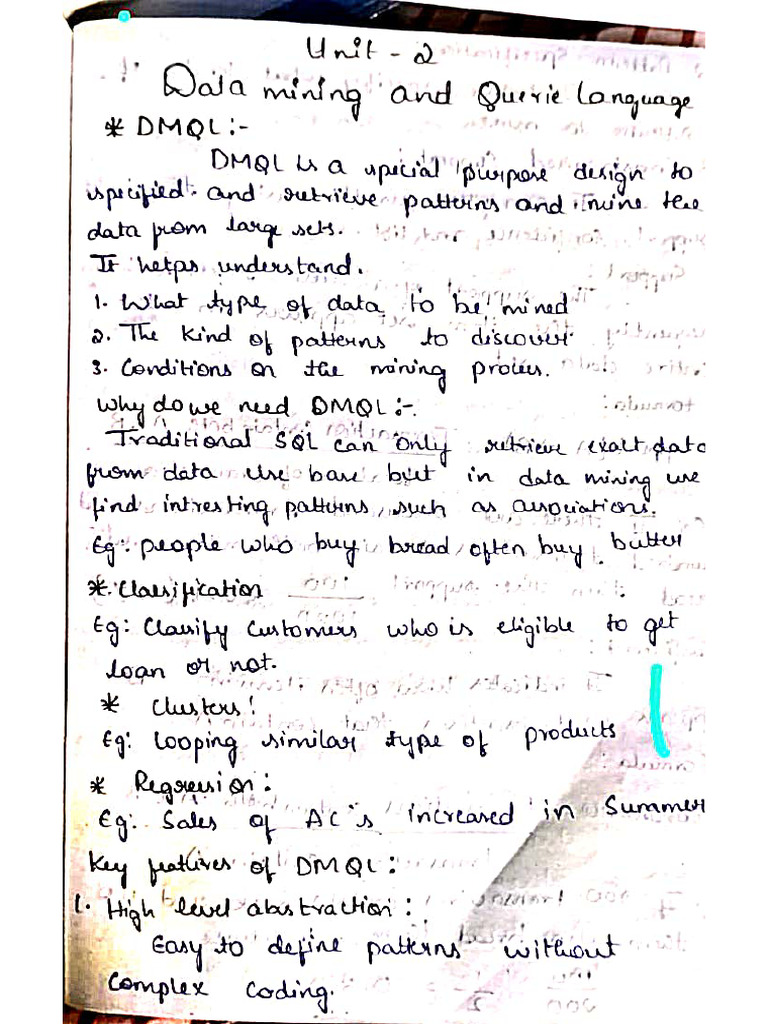 Unit - 2
Data mining and Querie Language
* DMQL :-
DMQL is a special purpose design to
specified and retrieve patterns and mine the
data from large sets.
It helps understand.
1. What type of data to be mined
2. The kind of patterns to discover
3. Conditions on the mining process.
Why do we need DMQL :-
Traditional SQL can only retrieve exact data
from data use base but in data mining use
find intresting patterns, such as associations.
Eg: people who buy bread often buy butter
* Classification
Eg: Classify customers who is eligible to get
loan or not.
* Clusters :
Eg: Looping similar type of products
* Regression :
Eg: Sales of AC's increased in Summer
Key features of DMQL :
1. High level abstraction :
Easy to define patterns without
Complex coding.